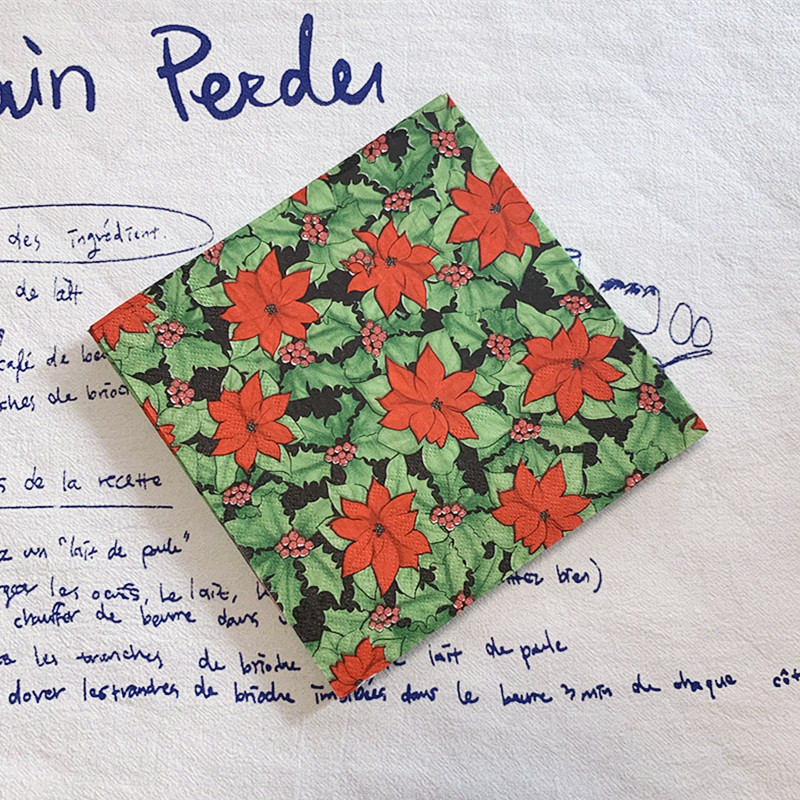 ain Perdu
des ingrédient.
de lait
café de
ches de brioc
s de la recette
z un "lait de poule"
ger les oeufs, le lait, bien)
chauffer de beurre dans
les tranches de brioche lait de poule
dorer les tranches de brioche imbibées dans le beurre 3 min de chaque côt